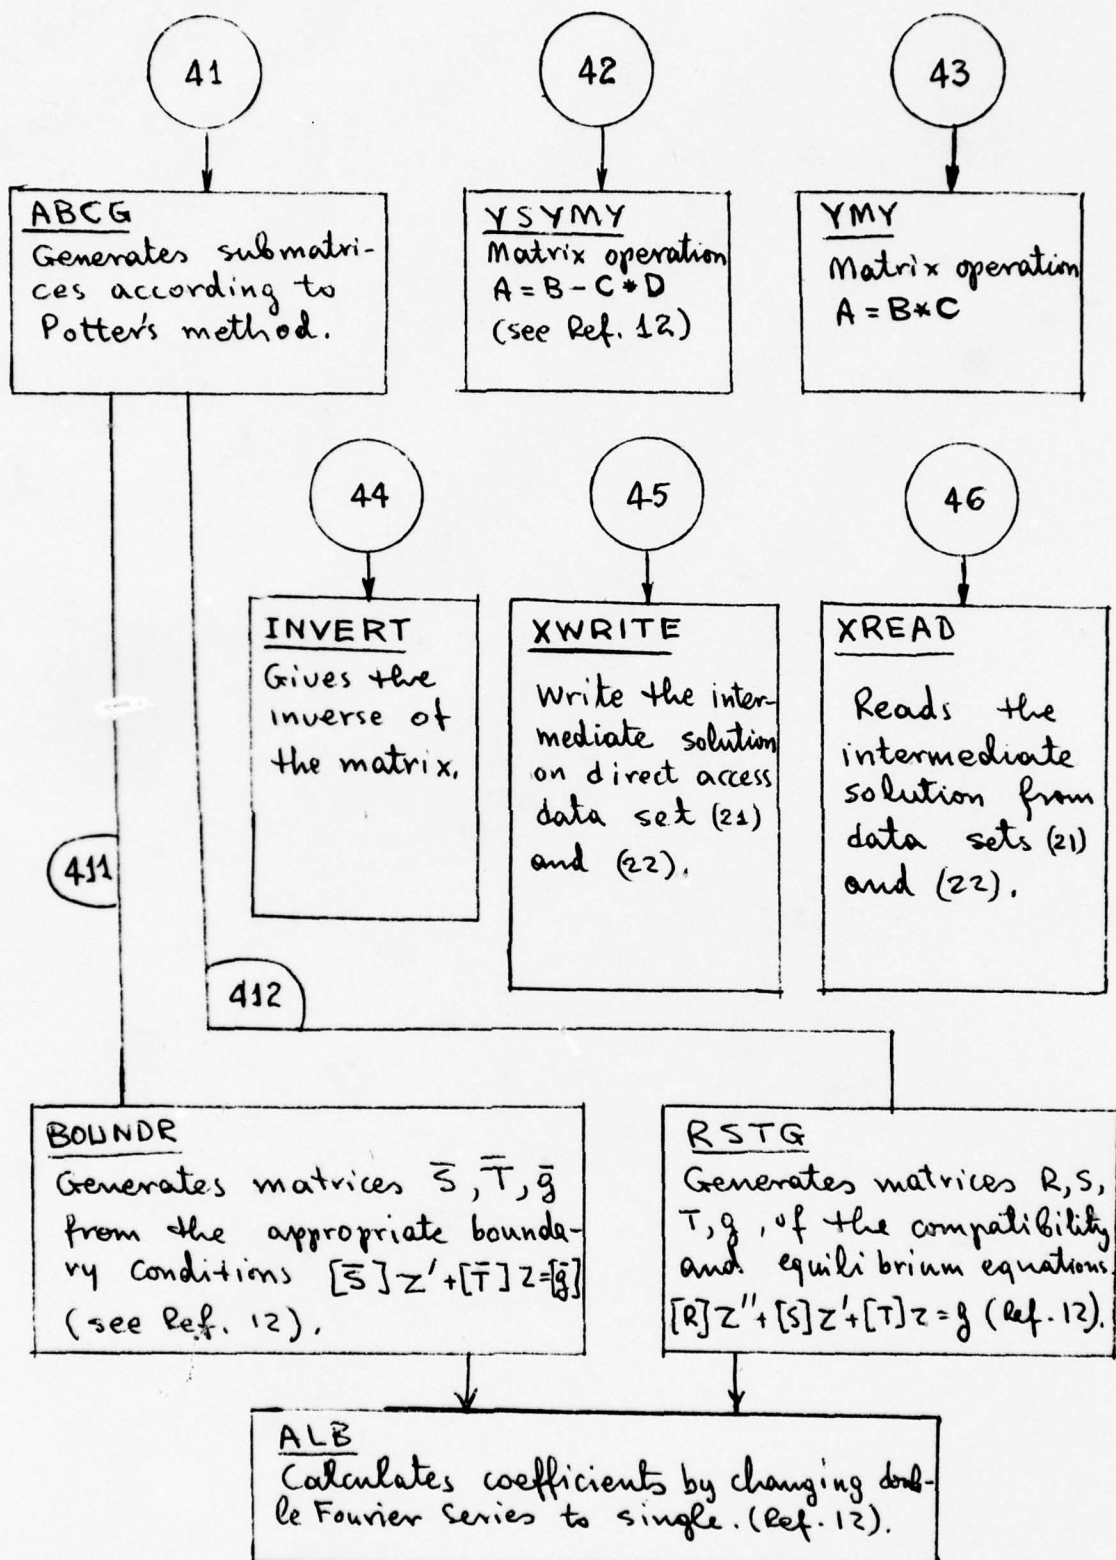 41
42
43
ABCG
Generates submatri-
ces according to
Potter's method.
YSYMY
Matrix operation
A = B - C * D
(see Ref. 12)
YMY
Matrix operation
A = B * C
44
45
46
INVERT
Gives the
inverse of
the matrix.
XWRITE
Write the inter-
mediate solution
on direct access
data set (21)
and (22).
XREAD
Reads the
intermediate
solution from
data sets (21)
and (22).
411
412
BOUNDR
Generates matrices S̄, T̄, ḡ
from the appropriate bounda-
ry conditions [S̄]z' + [T̄]z = [ḡ]
(see Ref. 12).
RSTG
Generates matrices R, S,
T, g, of the compatibility
and equilibrium equations.
[R]z'' + [S]z' + [T]z = g (Ref. 12).
ALB
Calculates coefficients by changing doub-
le Fourier Series to single. (Ref. 12).